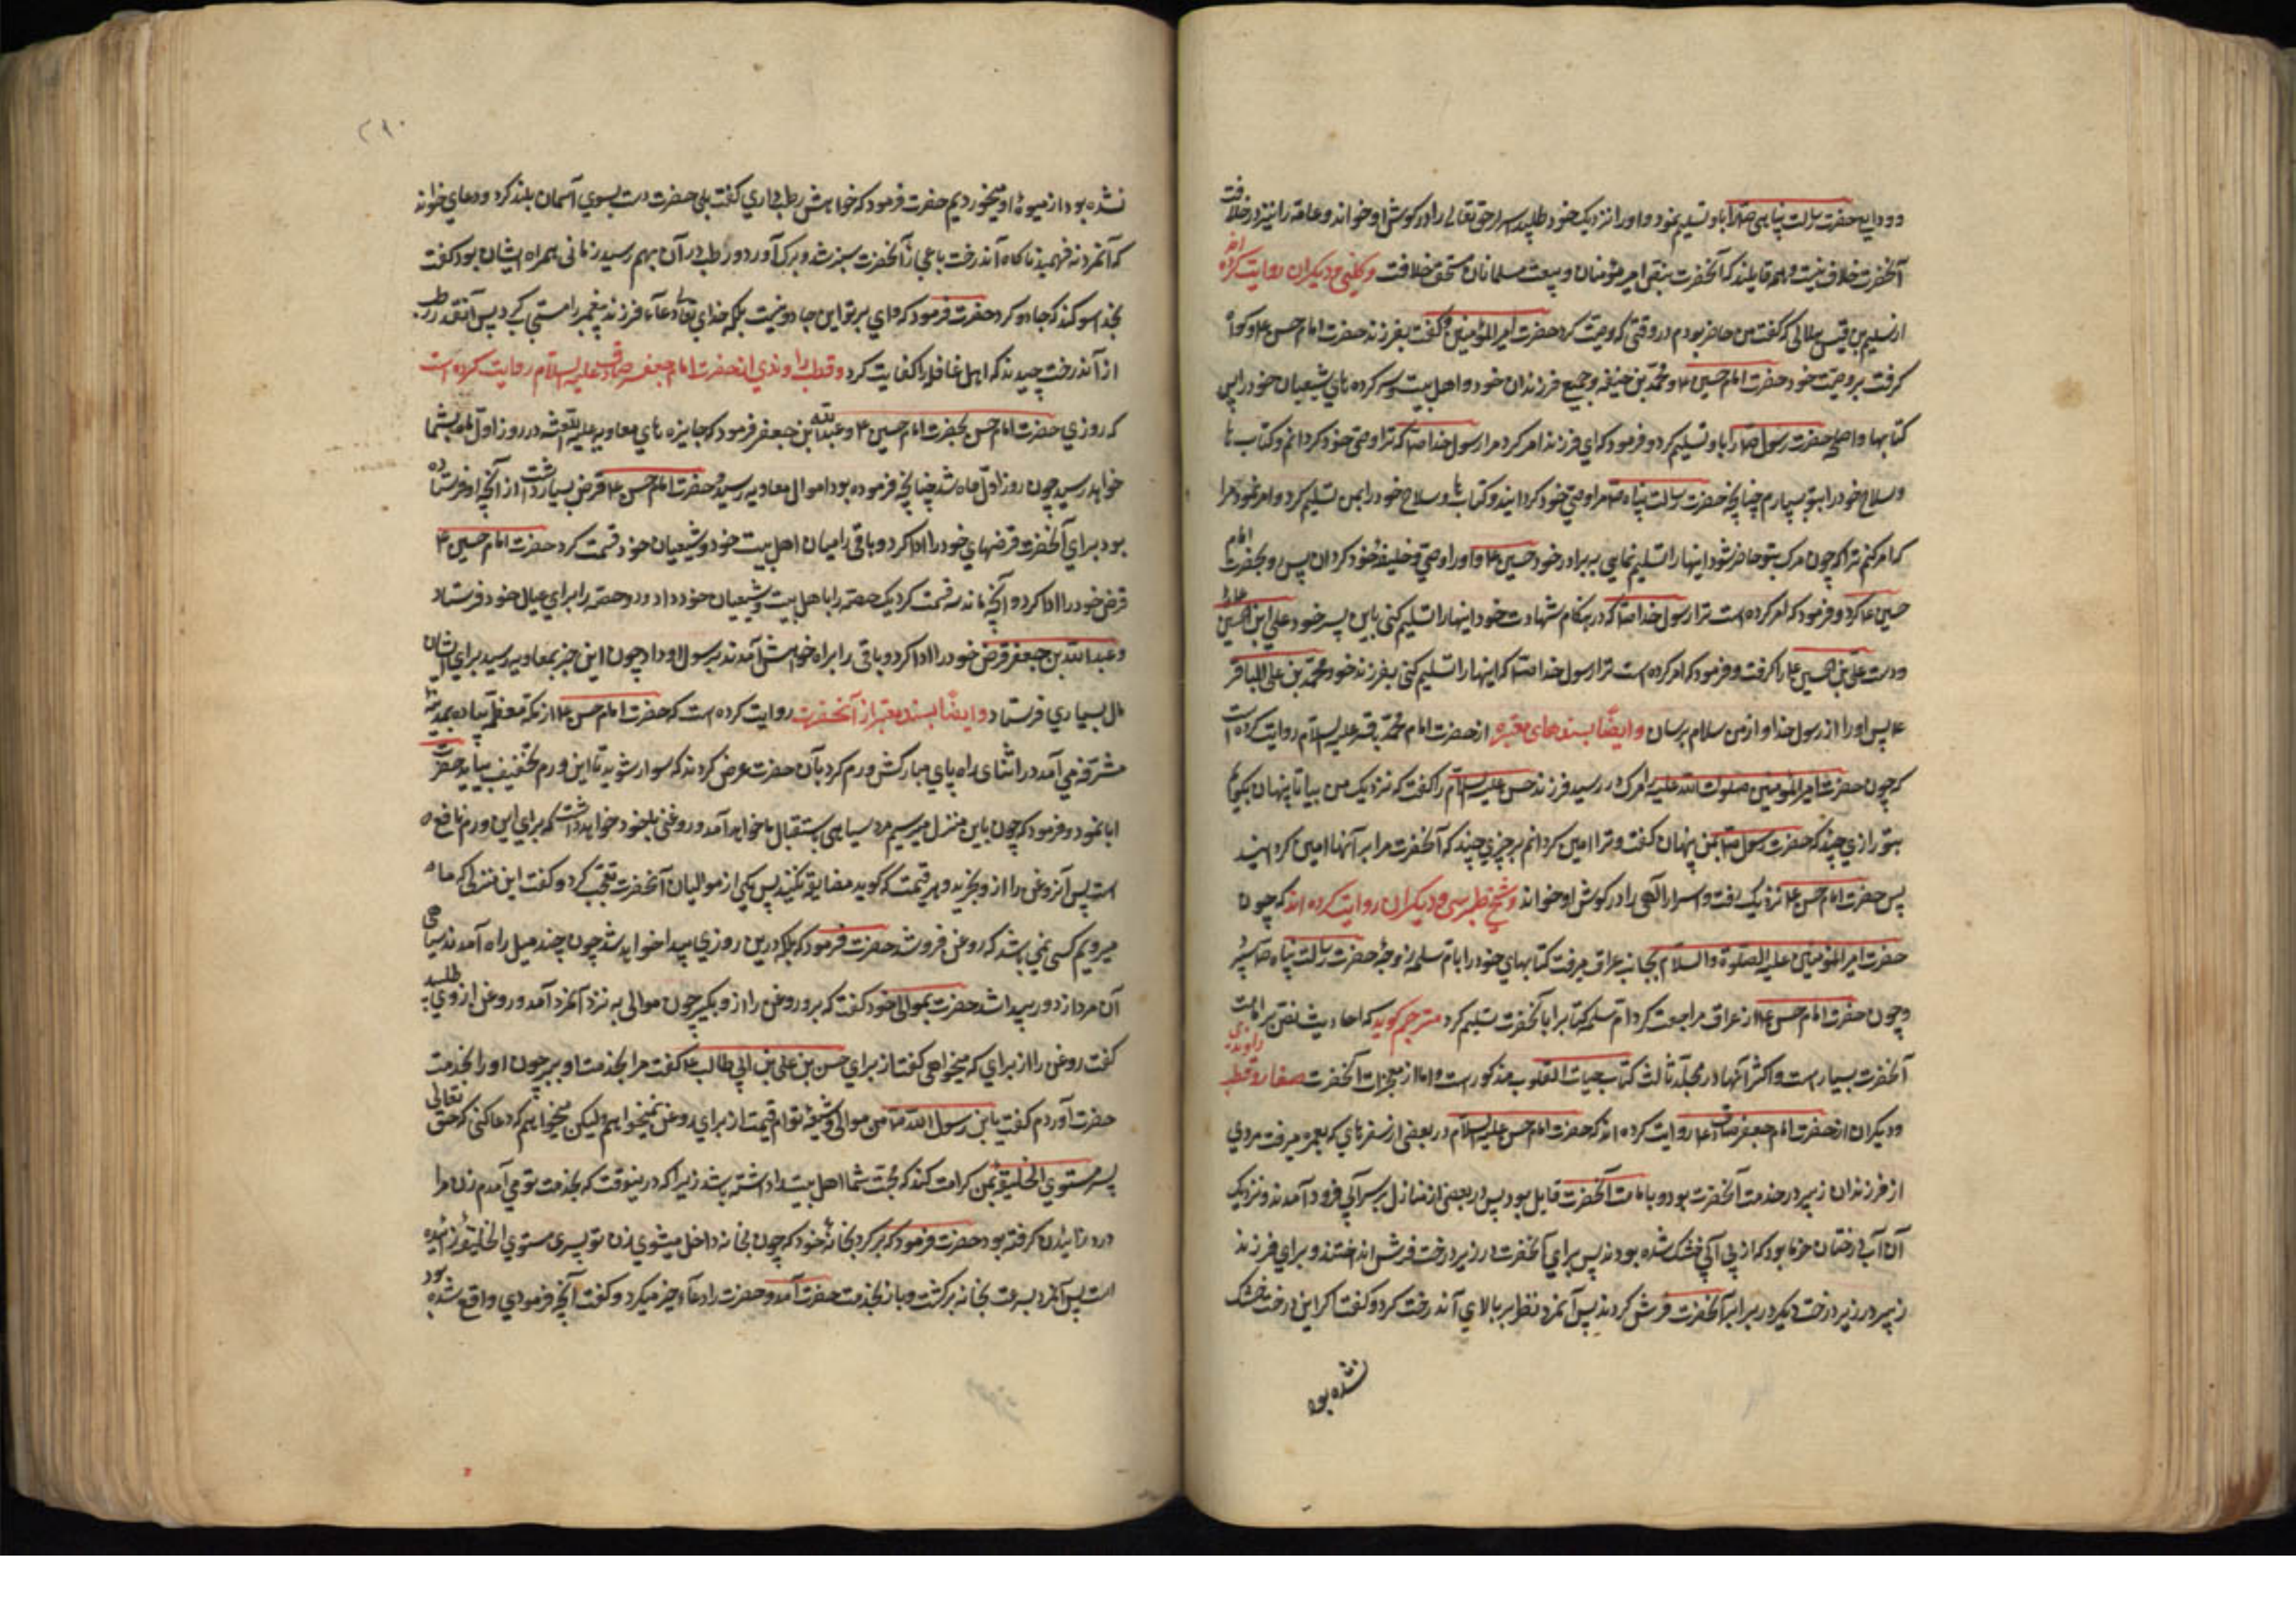 و ودایع حضرت رسالت پناهی ص را باو تسلیم نمود و او را نزدیک خود طلبید اسرار حق تعالی را در کوش او خواند و عامه را نیز در خلافت
آنحضرت خلافی نیست و همه قایلند که آنحضرت بنص امیر مؤمنان و بیعت مسلمانان مستحق خلافت و کلینی و دیکران روایت کرده اند
از سلیم بن قیس هلالی که کفت من حاضر بودم در وقتی که وصیت کرد حضرت امیر المؤمنین و کفت بفرزند حضرت امام حسن ع و کواه
کرفت بر وصیت خود حضرت امام حسین ع و محمد بن حنفیه و جمیع فرزندان خود و اهل بیت و سرکرده های شیعیان خود را پس
کتابها و اسلحه حضرت رسول ص را باو تسلیم کرد و فرمود که ای فرزند امر کرد مرا رسول خدا ص که ترا وصی خود کردانم و کتاب ها
و سلاح خود را بتو بسپارم چنانچه حضرت رسالت پناه ص مرا وصی خود کردانید و کتاب ها و سلاح خود را بمن تسلیم کرد و امر نمود مرا
که امر کنم ترا که چون مرک بتو حاضر شود اینها را تسلیم نمایی به برادر خود حسین ع و او را وصی و خلیفهٔ خود کردان پس و بحضرت امام
حسین ع کرد و فرمود که امر کرده است ترا رسول خدا ص که در هنکام شهادت خود اینها را تسلیم کنی باین پسر خود علی ابن الحسین ع
و دست علی بن الحسین ع را کرفت و فرمود که امر کرده است ترا رسول خدا ص که اینها را تسلیم کنی بفرزند خود محمد بن علی الباقر
ع پس او را از رسول خدا و از من سلام برسان و ایضًا بسندهای معتبره از حضرت امام محمد باقر علیه السلام روایت کرده است
که چون حضرت امیر المؤمنین صلوات الله علیه را مرک در رسید فرزند حسن علیه السلام را کفت که نزدیک من بیا تا پنهان بکویم
بتو رازی چند که حضرت رسول ص بمن پنهان کفت و ترا امین کردانم بر چیزی چند که آنحضرت مرا بر آنها امین کردانید
پس حضرت امام حسن ع نزدیک رفت و اسرار الهی را در کوش او خواند و شیخ طبرسی و دیکران روایت کرده اند که چون
حضرت امیر المؤمنین علیه الصلوة والسلام بجانب عراق میرفت کتابهای خود را بام سلمه زوجهٔ حضرت رسالت پناه ص سپرد
و چون حضرت امام حسن ع از عراق مراجعت کرد ام سلمه کتابرا بآنحضرت تسلیم کرد مترجم کوید که احادیث نص بر امامت
آنحضرت بسیار است و اکثر آنها در مجلد ثالث کتاب حیات القلوب مذکور است و اما از معجزات آنحضرت صفار و قطب راوندی
و دیکران از حضرت امام جعفر صادق ع روایت کرده اند که حضرت امام حسن علیه السلام در بعضی از سفرهای که بعمره میرفت مردی
از فرزندان زبیر در خدمت آنحضرت بود و بامامت آنحضرت قایل بود پس در بعضی از منازل بر سر آبی فرود آمدند و نزدیک
آن آب درختان خرما بود که از بی آبی خشک شده بودند پس برای آنحضرت در زیر درخت فرش انداختند و برای فرزند
زبیر در زیر درخت دیکر در برابر آنحضرت فرش کردند پس آنمرد نظر بر بالای آندرخت کرد و کفت اکر این درخت خشک
نشده بود
۲۹۰
نشده بود از میوهٔ او میخوردیم حضرت فرمود که خواهش رطب داری کفت بلی حضرت دست بسوی آسمان بلند کرد و دعای خواند
که آنمرد نه فهمید ناکاه آندرخت باعجاز آنحضرت سبز شد و برک آورد و رطب در آن بهم رسید زمانی همراه ایشان بود کفت
بخدا سوکند که جادو کرد حضرت فرمود که وای بر تو این جادو نیست بلکه خدای تعالی دعاء فرزند پیغمبر را مستجاب کرد پس آنقدر رطب
از آندرخت چیدند که اهل قافله را کفایت کرد و قطب راوندی از حضرت امام جعفر صادق علیه السلام روایت کرده است
که روزی حضرت امام حسن بحضرت امام حسین ع و عبدالله بن جعفر فرمود که جایزه های معاویه علیه اللعنه در روز اول ماه بشما
خواهد رسید چون روز اول ماه شد چنانچه فرموده بود اموال معاویه رسید و حضرت امام حسن ع قرض بسیار داشت از آنچه او فرستاده
بود برای آنحضرت قرضهای خود را ادا کرد و باقی را میان اهل بیت خود و شیعیان خود قسمت کرد حضرت امام حسین ع
قرض خود را ادا کرد و آنچه ماند سه قسمت کرد یک حصه را باهل بیت و شیعیان خود داد و دو حصه را برای عیال خود فرستاد
و عبدالله بن جعفر قرض خود را ادا کرد و باقی را براه خوامش آمدند برسول او داد چون این خبر بمعاویه رسید برای ایشان
مال بسیاری فرستاد و ایضًا بسند معتبر از آنحضرت روایت کرده است که حضرت امام حسن ع از مکه معظمه پیاده بمدینه
مشرفه می آمد در اثنای راه پای مبارکش ورم کرد بآن حضرت عرض کردند که سوار شوید تا این ورم تخفیف بیابد حضرت
ابا نمود و فرمود که چون باین منزل میرسیم مرد سیاهی باستقبال ما خواهد آمد و روغنی با خود خواهد داشت که برای این ورم نافع
است پس آنروغن را از و بخرید و بهر قیمت که کوید مضایقه نکنید پس یکی از موالیان آنحضرت تعجب کرد و کفت این منزلی که ما
میرویم کسی نمی باشد که روغن فروشد حضرت فرمود که بلکه درین روزی پیدا خواهد شد چون چند میل راه آمدند سیاهی
آن مرد از دور پیدا شد حضرت بموالی خود کفت که برو روغن را از و بکیر چون موالی به نزد آنمرد آمد و روغن از وی طلبید
کفت روغن را از برای که میخواهی کفت از برای حسن بن علی بن ابی طالب ع کفت مرا بخدمت او ببر چون او را بخدمت
حضرت آوردم کفت یابن رسول الله ص من موالی و شیعهٔ توام قیمت از برای روغن نمیخواهم ولیکن میخواهم که دعا کنی که حق تعالی
پسر مستوی الخلقهٔ بمن کرامت کند که محبت شما اهل بیت داشته باشد زیرا که در ینوقت که بخدمت تو می آمدم زن مرا
درد زائیدن کرفته بود حضرت فرمود که برکرد بخانهٔ خود که چون بخانه داخل میشوی زن تو پسری مستوی الخلقه زائیده
است پس آنمرد بسرعت بخانه برکشت و باز بخدمت حضرت آمد و حضرت را دعاء خیر میکرد و کفت آنچه فرمودی واقع شده بود